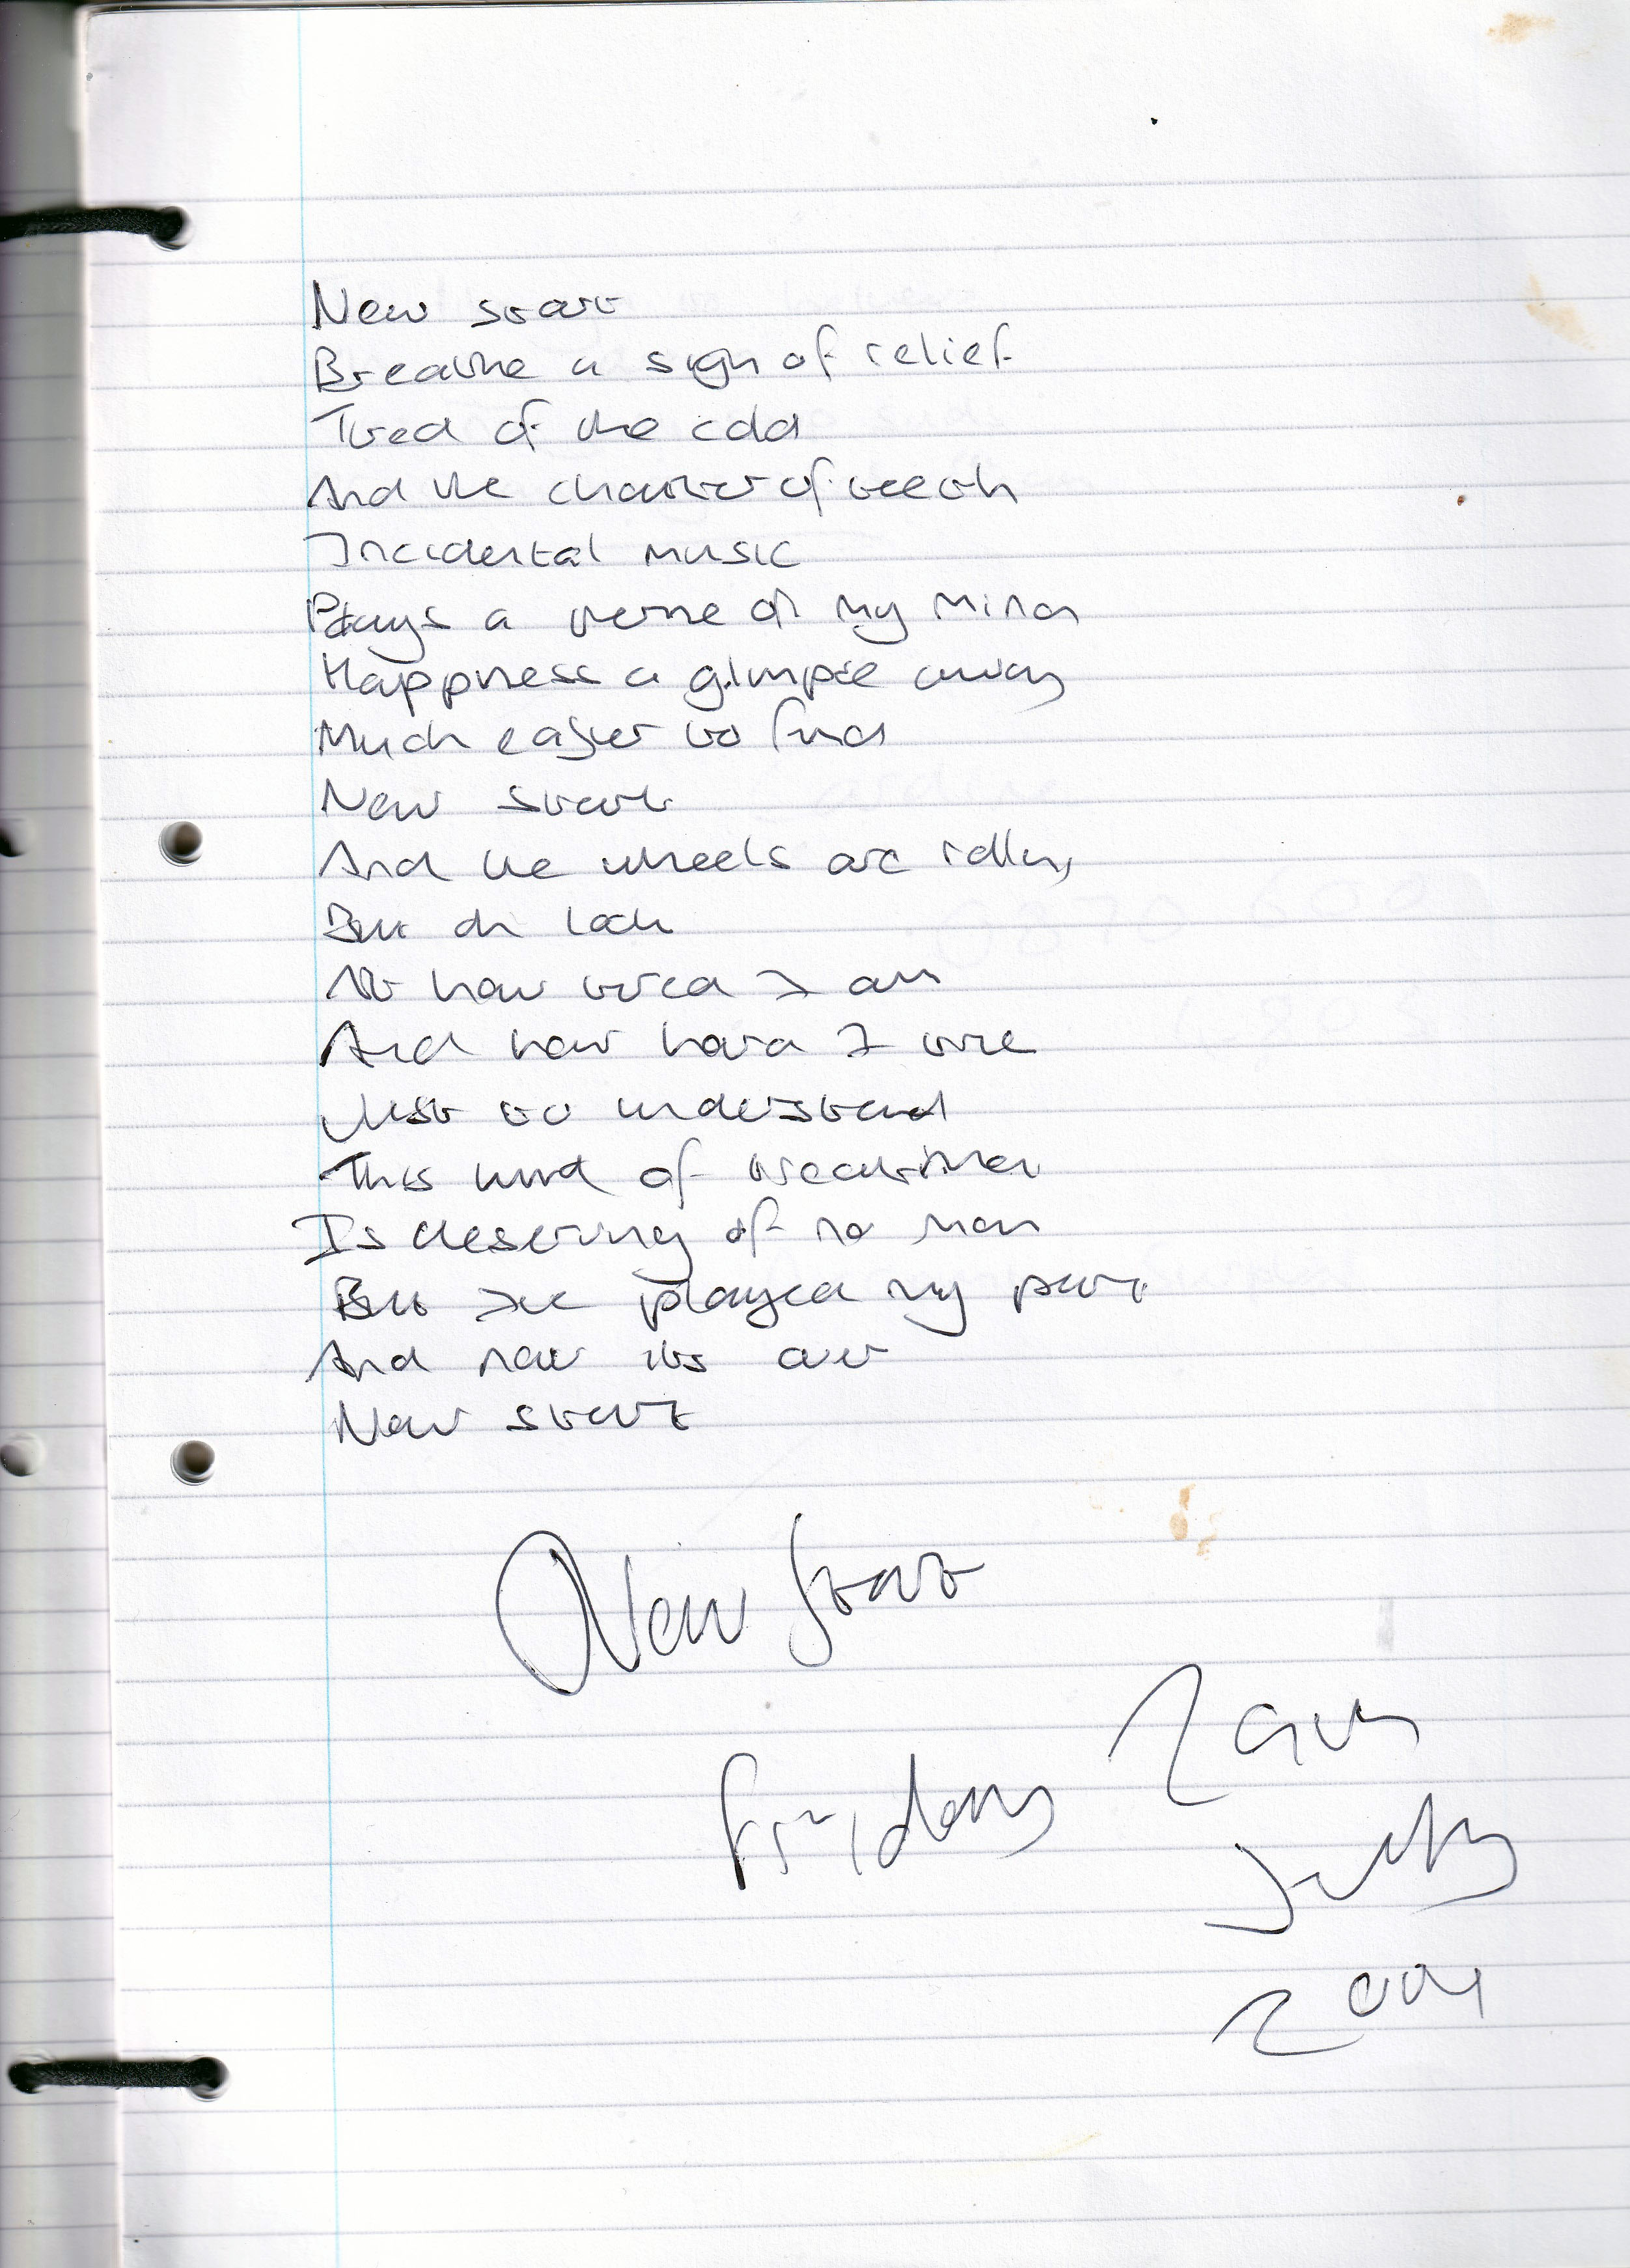 New start
Breathe a sign of relief
Tired of the cold
And the chatter of teeth
Incidental music
Plays a theme on my mind
Happiness a glimpse away
Much easier to find
New start
And the wheels are rolling
But oh look
At how tired I am
And how hard I try
Just to understand
This kind of
Is deserving of no man
But I've played my part
And now its over
New start
New Start
Friday
July